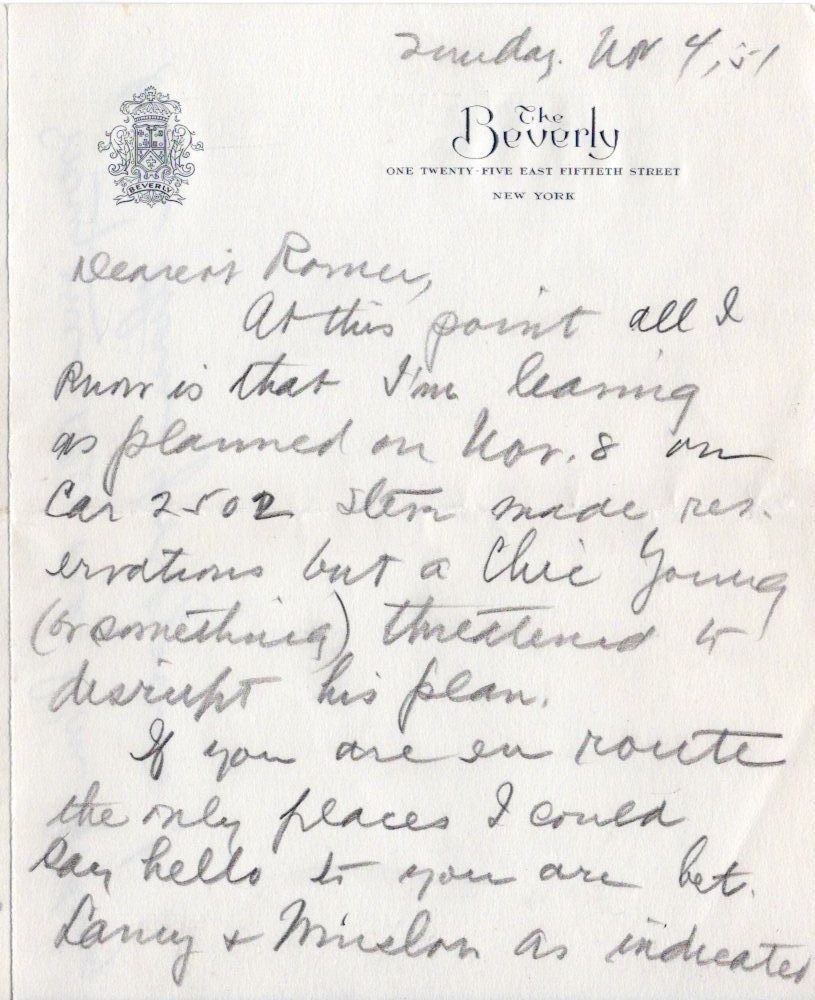 Sunday. Nov 4, 51
The
Beverly
BEVERLY
ONE TWENTY-FIVE EAST FIFTIETH STREET
NEW YORK
Dearest
At this point all I
know is that I'm leaving
as planned on Nov. 8 on
Car 2502 made res-
ervations but a Chic Young
(or something) threatened to
disrupt his plan.
If you are en route
the only places I could
say hello to you are bet.
& Winslow as indicated